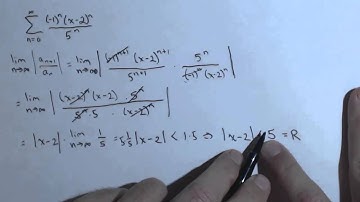 ∞ Σ n=0 (-1)^n (x-2)^n / 5^n
lim n→∞ | a_{n+1} / a_n | = lim n→∞ | (-1)^{n+1} (x-2)^{n+1} / 5^{n+1} · 5^n / (-1)^n (x-2)^n |
= lim n→∞ | (x-2)^n (x-2) · 5^n / 5^n · 5 · (x-2)^n |
= |x-2| · lim n→∞ 1/5 = 5·1/5 |x-2| < 1·5 ⇒ |x-2| < 5 = R